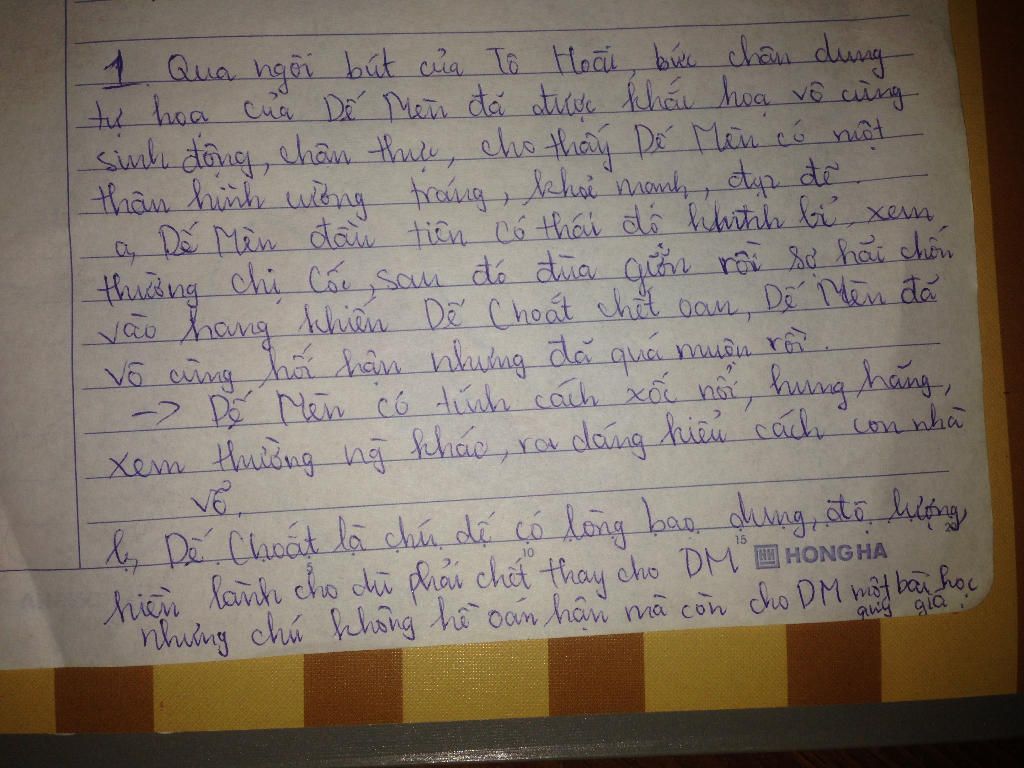 1. Qua ngòi bút của Tô Hoài, bức chân dung
tự họa của Dế Mèn đã được khắc họa vô cùng
sinh động, chân thực, cho thấy Dế Mèn có một
thân hình cường tráng, khỏe mạnh, đẹp đẽ.
a, Dế Mèn đầu tiên có thái độ khinh bỉ, xem
thường chị Cốc, sau đó đùa giỡn rồi sợ hãi chốn
vào hang khiến Dế Choắt chết oan, Dế Mèn đã
vô cùng hối hận nhưng đã quá muộn rồi.
-> Dế Mèn có tính cách xốc nổi, hung hăng,
xem thường ng khác, ra dáng kiểu cách con nhà
võ.
b, Dế Choắt là chú dế có lòng bao dung, độ lượng,
5 10 15 20
HONG HA
hiền lành cho dù phải chết thay cho DM
nhưng chú không hề oán hận mà còn cho DM một bài học
quý giá